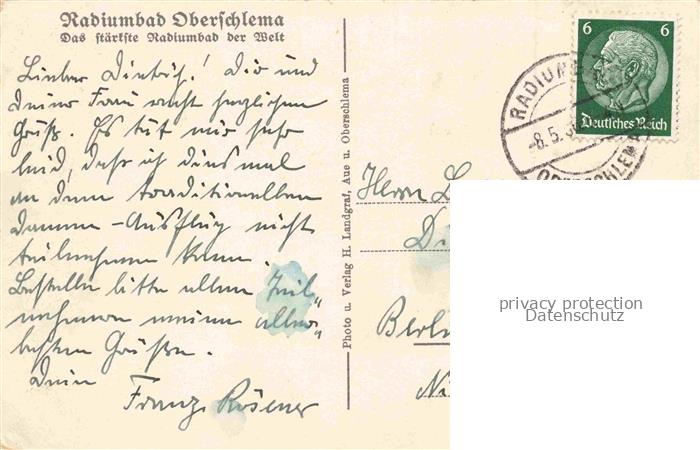 Radiumbad Oberschlema
Das stärkste Radiumbad der Welt
Lieber Dietrich! Dir und
Deiner Frau recht herzlichen
Gruß. Es tut mir sehr
leid, daß ich diesmal
an dem traditionellen
Damen-Ausflug nicht
teilnehmen kann.
Bestelle bitte allen Teil-
nehmern meine aller-
besten Grüße.
Dein
Franz Rösener
Photo u. Verlag H. Landgraf, Aue u. Oberschlema
6 6
Deutsches Reich
RADIUMB
-8.5.3
OBERSCHLEMA
Herrn
Berlin
privacy protection
Datenschutz